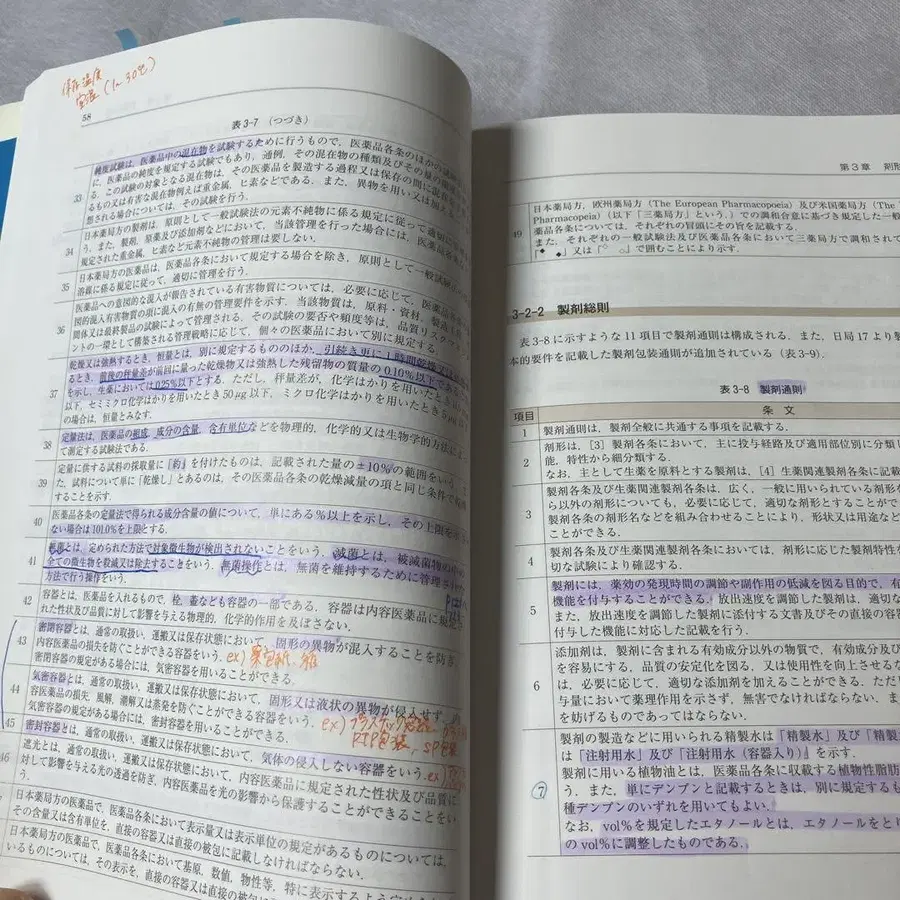 保存温度
室温(1~30℃)
58
表3-7 (つづき)
33
純度試験は、医薬品中の混在物を試験するために行うもので、医薬品各条のほかの
に、医薬品の純度を規定する試験でもあり、通例、その混在物の種類及びその量の
る。この試験の対象となる混在物は、その医薬品を製造する過程又は保存の間に
るもの又は有害な混在物例えば重金属、ヒ素などである。また、異物を用い又は
想される場合については、その試験を行う。
34
日本薬局方の製剤は、原則として一般試験法の元素不純物に係る規定に従って適切に
う。また、製剤、原薬及び添加剤などにおいて、当該管理を行った場合には、医薬品各条
規定された重金属、ヒ素など元素不純物の管理は要しない。
35
日本薬局方の医薬品は、医薬品各条において規定する場合を除き、原則として一般試験
溶媒に係る規定に従って、適切に管理を行う。
36
医薬品への意図的な混入が報告されている有害物質については、必要に応じて、医薬品各
図的混入有害物質の項に混入の有無の管理要件を示す。当該物質は、原料・資材、製造工程
間体又は最終製品の試験によって管理される。その試験の要否や頻度等は、品質リスクマ
ントの一環として構築される管理戦略に応じて、個々の医薬品において別に規定する。
37
乾燥又は強熱するとき、恒量とは、別に規定するもののほか、引続き更に1時間乾燥又は強熱
とき、前後の秤量差が前回に量った乾燥物又は強熱した残留物の質量の0.10%以下であること
を示し、生薬においては0.25%以下とする。ただし、秤量差が、化学はかりを用いたとき
以下、セミミクロ化学はかりを用いたとき50μg以下、ミクロ化学はかりを用いたとき5μg
の場合は、恒量とみなす。
38
定量法は、医薬品の組成、成分の含量、含有単位などを物理的、化学的又は生物学的方法に
て測定する試験法である。
39
定量に供する試料の採取量に「約」を付けたものは、記載された量の±10%の範囲をいう。
た、試料について単に「乾燥し」とあるのは、その医薬品各条の乾燥減量の項と同じ条件で
することを示す。
40
医薬品各条の定量法で得られる成分含量の値について、単にある%以上を示し、その上限を
ない場合は101.0%を上限とする。
41
無菌とは、定められた方法で対象微生物が検出されないことをいう。滅菌とは、被滅菌物の中の
全ての微生物を殺滅又は除去することをいう。無菌操作とは、無菌を維持するために管理された
方法で行う操作をいう。
42
容器とは、医薬品を入れるもので、栓、蓋なども容器の一部である。容器は内容医薬品に規定
れた性状及び品質に対して影響を与える物理的、化学的作用を及ぼさない。
43
密閉容器とは、通常の取扱い、運搬又は保存状態において、固形の異物が混入することを防ぎ、
内容医薬品の損失を防ぐことができる容器をいう。ex)薬包紙、箱
密閉容器の規定がある場合には、気密容器を用いることができる。
44
気密容器とは、通常の取扱い、運搬又は保存状態において、固形又は液状の異物が侵入せず、
容医薬品の損失、風解、潮解又は蒸発を防ぐことができる容器をいう。ex)プラスチック容器、
気密容器の規定がある場合には、密封容器を用いることができる。PTP包装、SP包装
45
密封容器とは、通常の取扱い、運搬又は保存状態において、気体の侵入しない容器をいう。ex)
46
遮光とは、通常の取扱い、運搬又は保存状態において、内容医薬品に規定された性状及び品質に
対して影響を与える光の透過を防ぎ、内容医薬品を光の影響から保護することができることをい
日本薬局方の医薬品で、医薬品各条において表示量又は表示単位の規定があるものについては、
その含量又は含有単位を、直接の容器又は直接の被包に記載しなければならない。
日本薬局方の医薬品で、医薬品各条において基原、数値、物性等、特に表示するよう
いるものについては、その表示を、直接の容器又は直接の被包に
第3章 剤形
49
日本薬局方、欧州薬局方(The European Pharmacopoeia)及び米国薬局方(The
Pharmacopeia)(以下「三薬局方」という。)での調和合意に基づき規定した一般
薬品各条については、それぞれの冒頭にその旨を記載する。
また、それぞれの一般試験法及び医薬品各条において三薬局方で調和されて
「◆ ◆」又は「◇ ◇」で囲むことにより示す。
3-2-2 製剤総則
表3-8に示すような11項目で製剤通則は構成される。また、日局17より製
本的要件を記載した製剤包装通則が追加されている(表3-9)。
表3-8 製剤通則
項目 条文
1 製剤通則は、製剤全般に共通する事項を記載する。
2 剤形は、[3]製剤各条において、主に投与経路及び適用部位別に分類
能、特性から細分類する。
なお、主として生薬を原料とする製剤は、[4]生薬関連製剤各条に記載
3
製剤各条及び生薬関連製剤各条は、広く、一般に用いられている剤形を
ら以外の剤形についても、必要に応じて、適切な剤形とすることがで
製剤各条の剤形名などを組み合わせることにより、形状又は用途など
ことができる。
4 製剤各条及び生薬関連製剤各条においては、剤形に応じた製剤特性を
切な試験により確認する。
5
製剤には、薬効の発現時間の調節や副作用の低減を図る目的で、有
機能を付与することができる。放出速度を調節した製剤は、適切な
また、放出速度を調節した製剤に添付する文書及びその直接の容器
付与した機能に対応した記載を行う。
6
添加剤は、製剤に含まれる有効成分以外の物質で、有効成分及び
を容易にする、品質の安定化を図る、又は使用性を向上させるな
は、必要に応じて、適切な添加剤を加えることができる。ただし
与量において薬理作用を示さず、無害でなければならない。ま
を妨げるものであってはならない。
7
製剤の製造などに用いられる精製水は「精製水」及び「精製
は「注射用水」及び「注射用水(容器入り)」を示す。
製剤に用いる植物油とは、医薬品各条に収載する植物性脂肪
う。また、単にデンプンと記載するときは、別に規定するも
種デンプンのいずれを用いてもよい。
なお、vol%を規定したエタノールとは、エタノールをとり
のvol%に調整したものである。